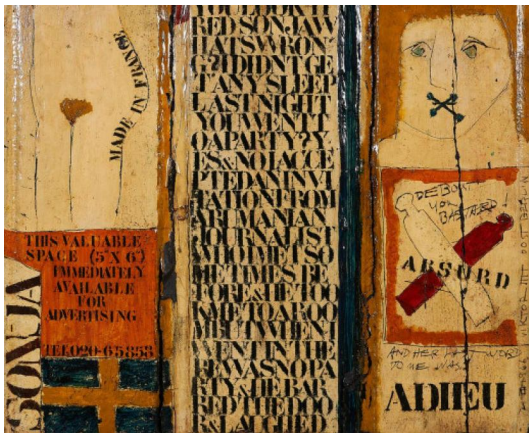 MADE IN FRANCE
THIS VALUABLE
SPACE (5"X 6")
IMMEDIATELY
AVAILABLE
FOR
ADVERTISING
TEL:020-65858
SONJA
REDSONJAW
HATSWRON
G?IDIDNTGE
TANYSLEEP
LASTNIGHT
YOUWENTT
OAPARTY?Y
ES&NOIACCE
PTEDANINVI
TATIONFROM
ARUMANIAN
JOURNALIST
WHOIMETSO
METIMESBE
FORE&HETOO
KMETOAROO
MBUTWHENI
WENTINTHE
REWASNOPA
RTY&HEBAR
REDTHEDOO
R&LAUGHED
DEBOUT
YOU
BASTARD!
ABSURD
AND HER LAST WORD
TO ME WAS
ADIEU